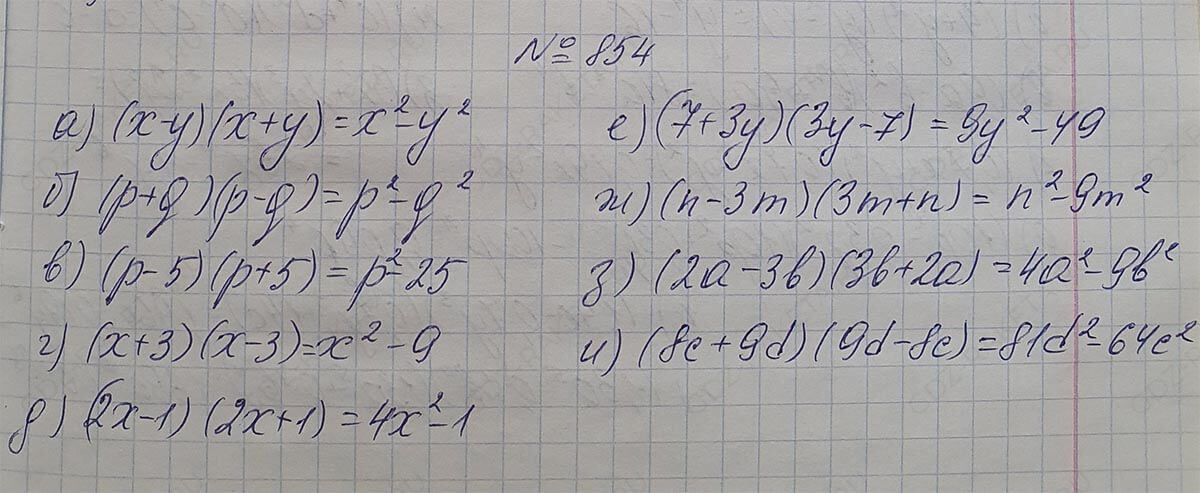 № 854
а) (x-y)(x+y)=x²-y²
б) (p+q)(p-q)=p²-q²
в) (p-5)(p+5)=p²-25
г) (x+3)(x-3)=x²-9
д) (2x-1)(2x+1)=4x²-1
е) (7+3y)(3y-7)=9y²-49
ж) (n-3m)(3m+n)=n²-9m²
з) (2a-3b)(3b+2a)=4a²-9b²
и) (8c+9d)(9d-8c)=81d²-64c²